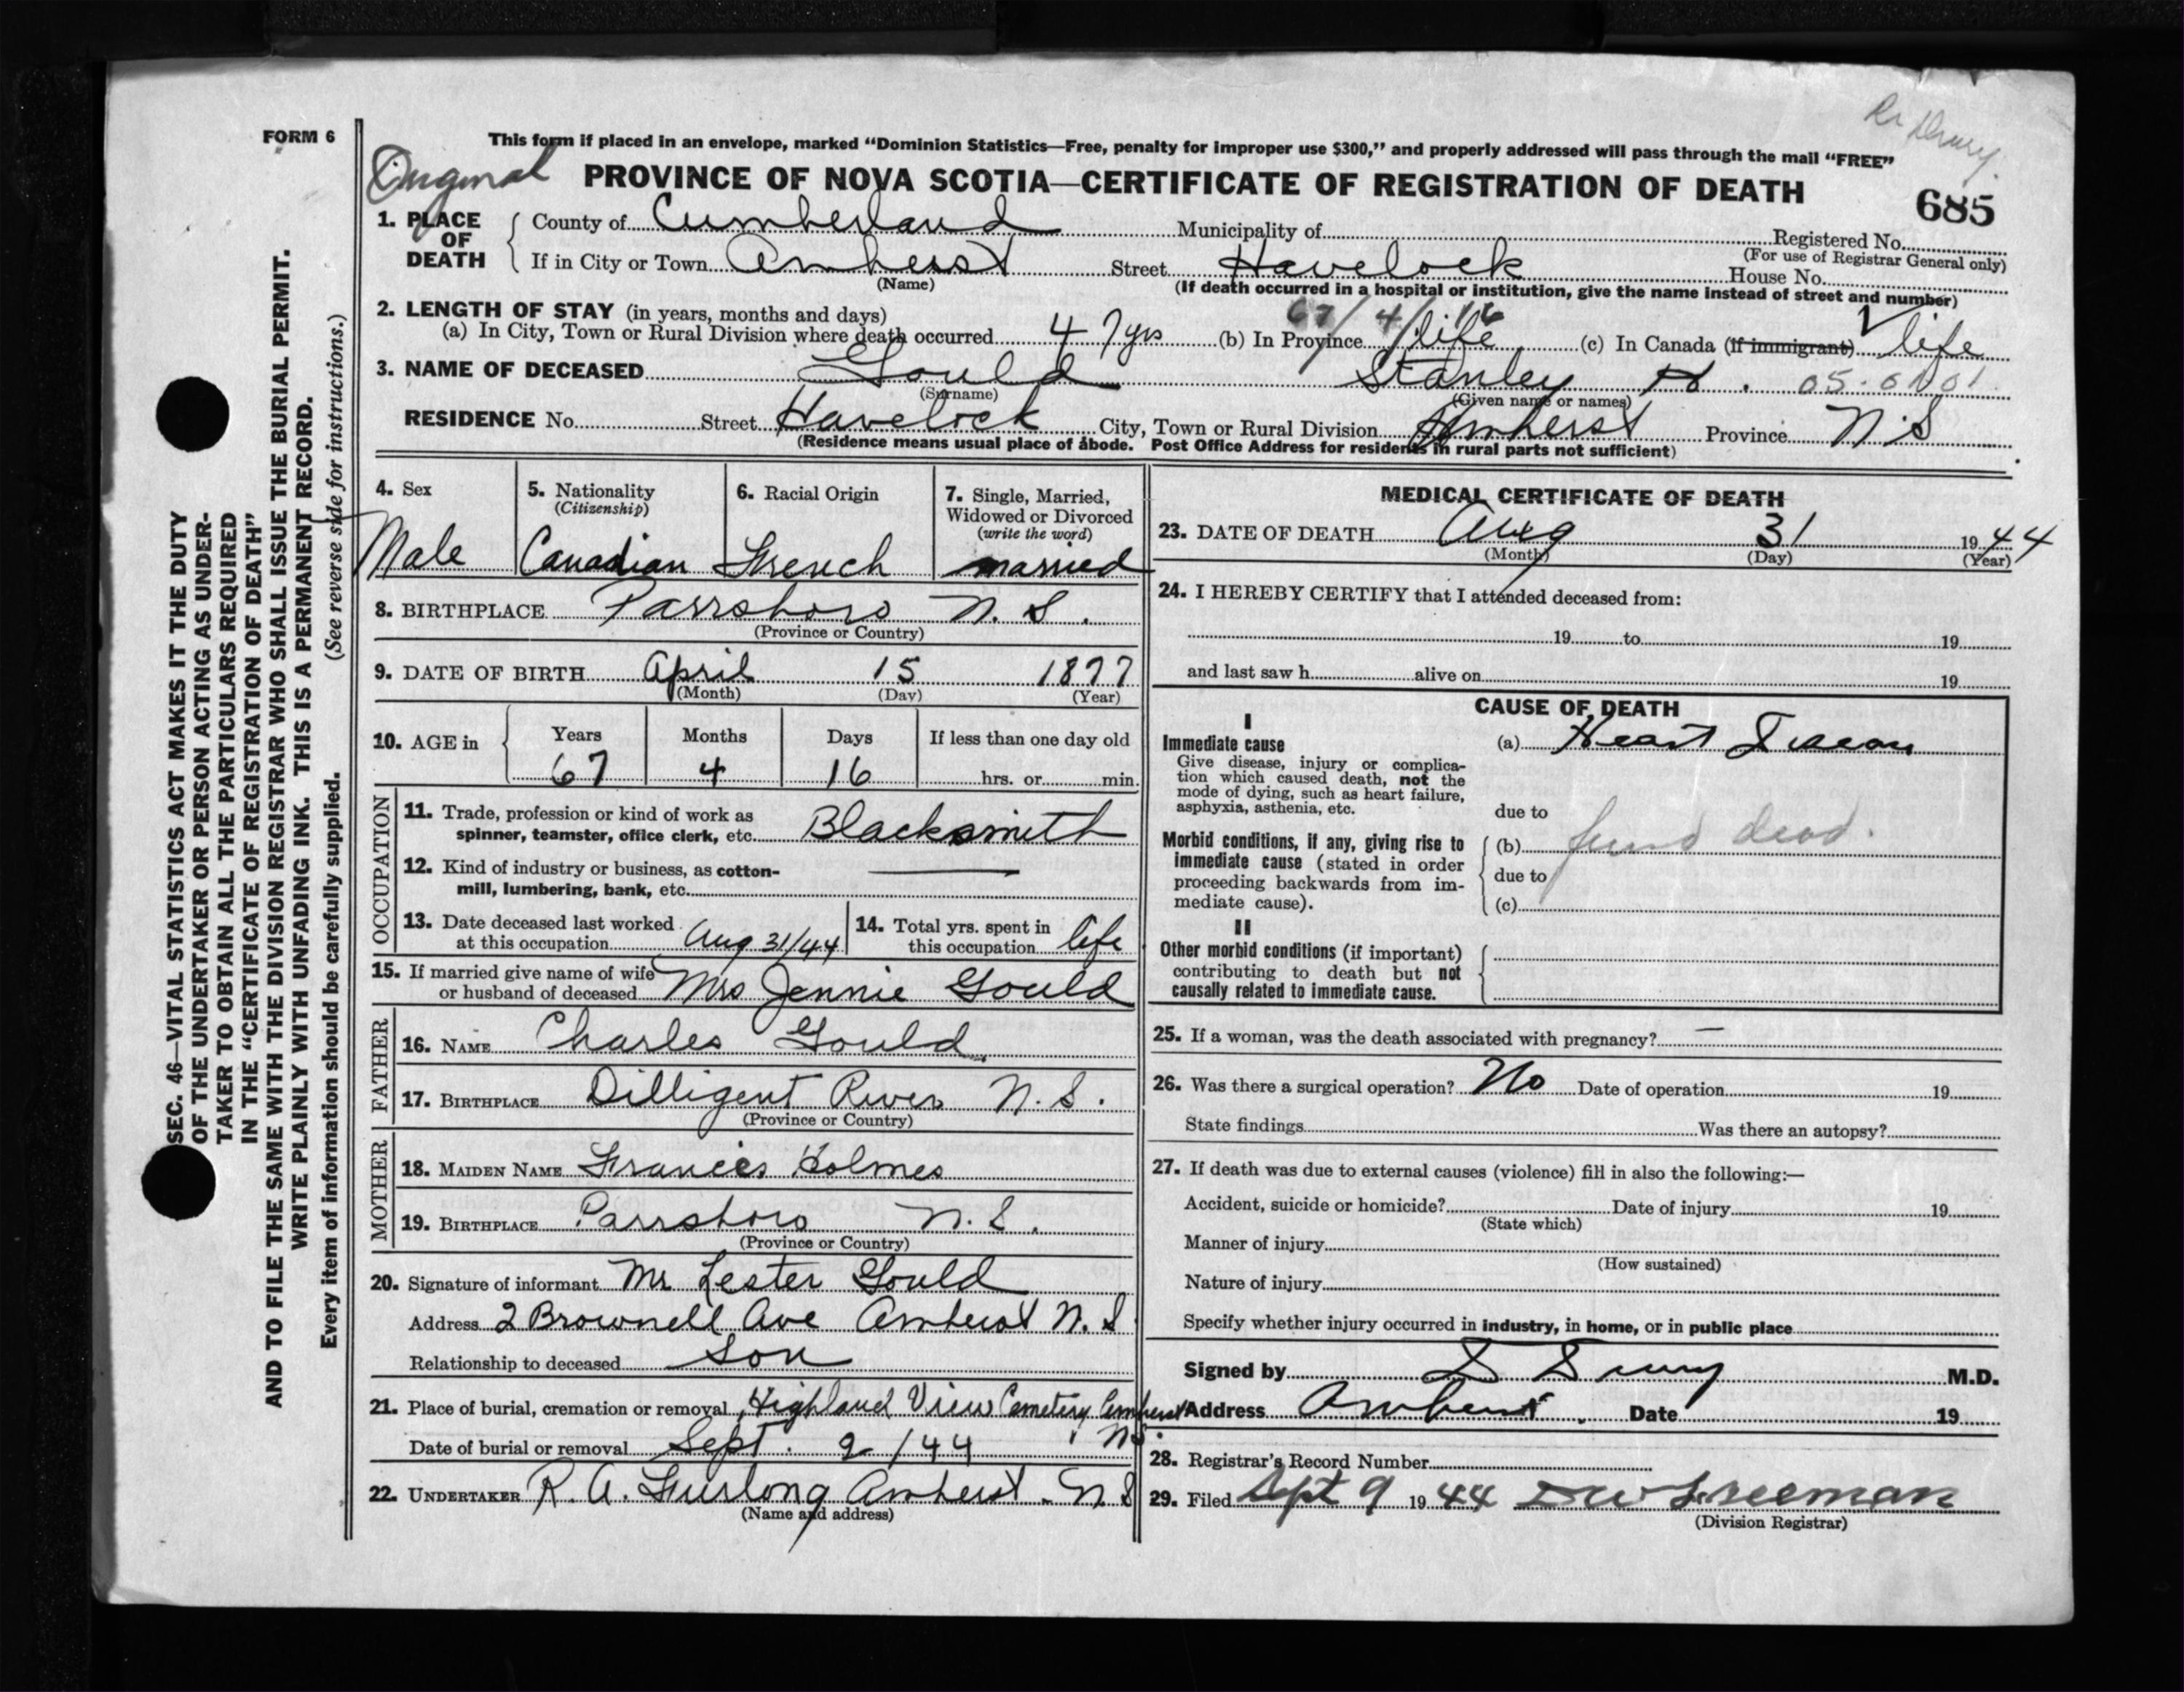 FORM 6
This form if placed in an envelope, marked "Dominion Statistics—Free, penalty for improper use $300," and properly addressed will pass through the mail "FREE"
Original
PROVINCE OF NOVA SCOTIA—CERTIFICATE OF REGISTRATION OF DEATH
685
1. PLACE OF DEATH
County of Cumberland Municipality of Registered No.
(For use of Registrar General only)
If in City or Town Amherst Street Havelock House No.
(Name) (If death occurred in a hospital or institution, give the name instead of street and number)
2. LENGTH OF STAY (in years, months and days) 67/4/16
(a) In City, Town or Rural Division where death occurred 47 yrs (b) In Province life (c) In Canada (if immigrant) life
3. NAME OF DECEASED Gould Stanley H.
(Surname) (Given name or names)
RESIDENCE No. Street Havelock City, Town or Rural Division Amherst Province N.S
(Residence means usual place of abode. Post Office Address for residents in rural parts not sufficient)
4. Sex
Male
5. Nationality
(Citizenship)
Canadian
6. Racial Origin
French
7. Single, Married,
Widowed or Divorced
(write the word)
married
8. BIRTHPLACE Parrsboro N.S.
(Province or Country)
9. DATE OF BIRTH April 15 1877
(Month) (Day) (Year)
10. AGE in Years Months Days If less than one day old
67 4 16 hrs. or min.
OCCUPATION
11. Trade, profession or kind of work as
spinner, teamster, office clerk, etc. Blacksmith
12. Kind of industry or business, as cotton-
mill, lumbering, bank, etc. —
13. Date deceased last worked
at this occupation Aug 31/44
14. Total yrs. spent in
this occupation life
15. If married give name of wife
or husband of deceased Mrs Jennie Gould
FATHER
16. NAME Charles Gould
17. BIRTHPLACE Dilligent River N.S.
(Province or Country)
MOTHER
18. MAIDEN NAME Francies Holmes
19. BIRTHPLACE Parrsboro N.S.
(Province or Country)
20. Signature of informant Mr Lester Gould
Address 2 Brownell Ave Amherst N.S
Relationship to deceased Son
21. Place of burial, cremation or removal Highland View Cemetery Amherst
N.S.
Date of burial or removal Sept. 2/44
22. UNDERTAKER R. A. Furlong Amherst. N S
(Name and address)
MEDICAL CERTIFICATE OF DEATH
23. DATE OF DEATH Aug 31 1944
(Month) (Day) (Year)
24. I HEREBY CERTIFY that I attended deceased from:
19 to 19
and last saw h alive on 19
CAUSE OF DEATH
I
Immediate cause
Give disease, injury or complica-
tion which caused death, not the
mode of dying, such as heart failure,
asphyxia, asthenia, etc.
(a) Heart Disease
due to
Morbid conditions, if any, giving rise to
immediate cause (stated in order
proceeding backwards from im-
mediate cause).
(b) found dead.
due to
(c)
II
Other morbid conditions (if important)
contributing to death but not
causally related to immediate cause.
25. If a woman, was the death associated with pregnancy? —
26. Was there a surgical operation? No Date of operation 19
State findings Was there an autopsy?
27. If death was due to external causes (violence) fill in also the following:—
Accident, suicide or homicide? Date of injury 19
(State which)
Manner of injury
(How sustained)
Nature of injury
Specify whether injury occurred in industry, in home, or in public place
Signed by M.D.
Address Amherst. Date 19
28. Registrar's Record Number
29. Filed Sept 9 1944 D W Freeman
(Division Registrar)
SEC. 46—VITAL STATISTICS ACT MAKES IT THE DUTY
OF THE UNDERTAKER OR PERSON ACTING AS UNDER-
TAKER TO OBTAIN ALL THE PARTICULARS REQUIRED
IN THE "CERTIFICATE OF REGISTRATION OF DEATH"
AND TO FILE THE SAME WITH THE DIVISION REGISTRAR WHO SHALL ISSUE THE BURIAL PERMIT.
WRITE PLAINLY WITH UNFADING INK. THIS IS A PERMANENT RECORD.
Every item of information should be carefully supplied. (See reverse side for instructions.)